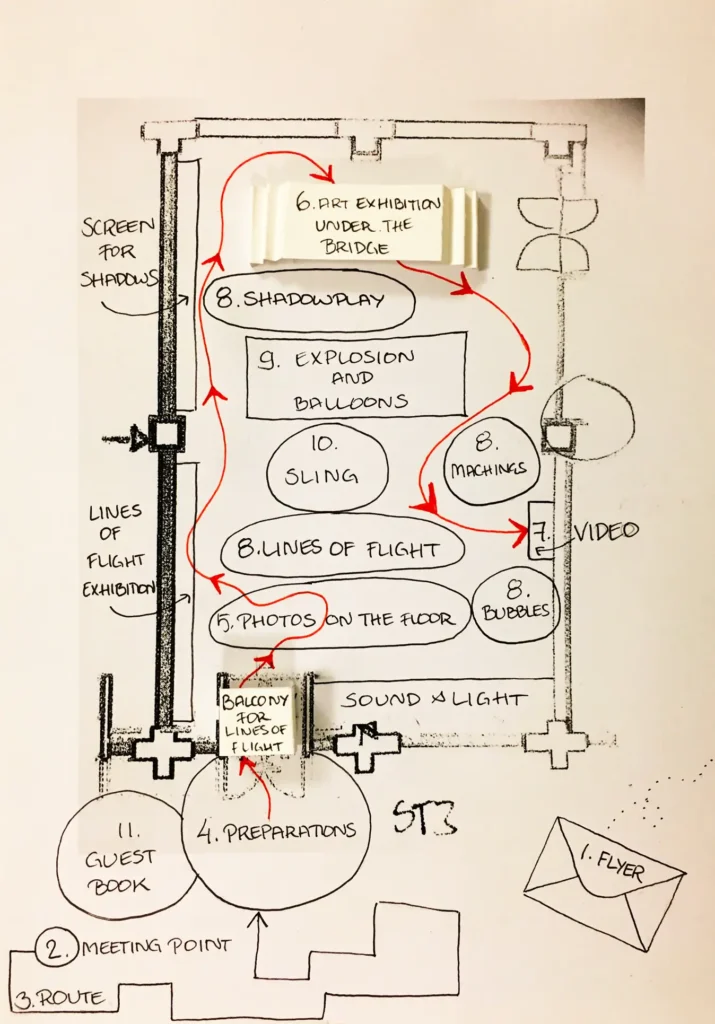 6. ART EXHIBITION
UNDER THE
BRIDGE
SCREEN
FOR
SHADOWS
8. SHADOWPLAY
9. EXPLOSION
AND
BALLOONS
10.
SLING
8.
MACHINGS
LINES
OF
FLIGHT
EXHIBITION
8. LINES OF FLIGHT
7. VIDEO
5. PHOTOS ON THE FLOOR
8.
BUBBLES
BALCONY
FOR
LINES OF
FLIGHT
SOUND & LIGHT
11.
GUEST
BOOK
4. PREPARATIONS
ST3
1. FLYER
2. MEETING POINT
3. ROUTE